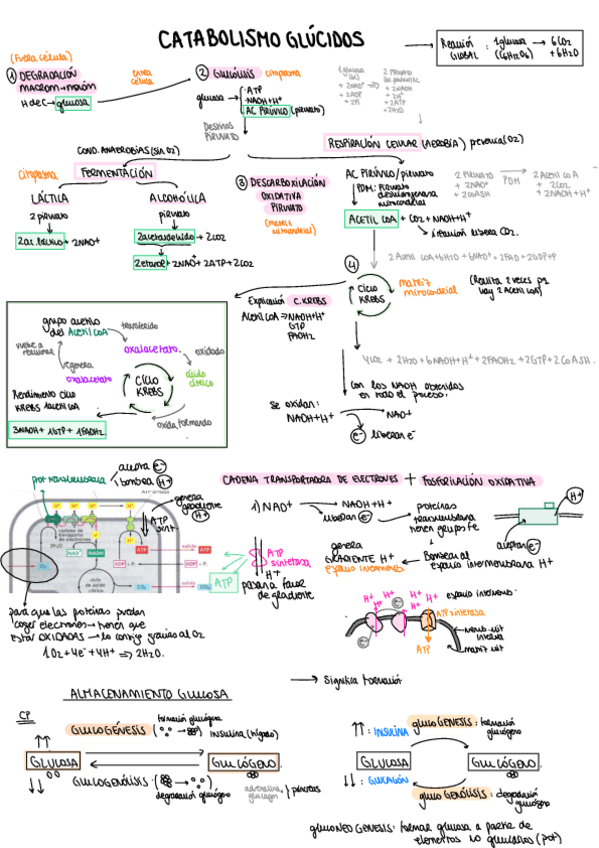 CATABOLISMO GLÚCIDOS
Reacción GLOBAL : 1 glucosa (C6H12O6) → 6CO2 + 6H2O
(Fuera célula)
① DEGRADACIÓN
MACROM → MONÓM
H de C → glucosa
entra célula
② GLUCÓLISIS citoplasma
glucosa → · ATP
· NADH+H+
AC PIRÚVICO (piruvato)
1 glucosa
(6C)
+ 2NAD+
+ 2ADP
+ 2Pi
2 PIRUVATO
+ 2NADH
+ 2H+
+ 2ATP
+ 2H2O
DESTINOS PIRUVATO
COND. ANAEROBIAS (SIN O2)
RESPIRACIÓN CELULAR (AEROBIA) presencia (O2)
citoplasma
FERMENTACIÓN
LÁCTICA
2 piruvato
2 ac. láctico + 2NAD+
ALCOHÓLICA
piruvato
2 acetaldehído + 2CO2
2 etanol + 2NAD+ + 2ATP + 2CO2
③ DESCARBOXILACIÓN
OXIDATIVA
PIRUVATO
(matriz mitocondrial)
AC PIRÚVICO/piruvato
PDH: Piruvato deshidrogenasa mitocondrial
ACETIL COA + CO2 + NADH+H+
reacción libera CO2
2 PIRUVATO
+ 2NAD+
+ 2COASH
PDH
2 Acetil COA
+ 2CO2
+ 2NADH+H+
2 Acetil COA + 6H2O + 6NAD+ + 2FAD + 2GDP + Pi
④
CICLO KREBS
matriz mitocondrial
(Repita 2 veces pq hay 2 Acetil CoA)
Explicación C. KREBS
Acetil CoA → NADH+H+
GTP
FADH2
4CO2 + 2H2O + 6NADH+H+ + 2FADH2 + 2GTP + 2COASH
con los NADH obtenidos en todo el proceso.
se oxidan:
NADH+H+ → NAD+
e- liberan e-
grupo acetilo
del Acetil CoA
transferido
oxalacetato
oxidado
ácido cítrico
oxida formando
CICLO KREBS
vuelve a reacionar
genera
oxalacetato
Rendimiento Ciclo
KREBS 1 acetil CoA
3NADH + 1GTP + 1FADH2
prot transmembrana
acepta e-
bombea H+
genera gradiente H+
ATP sint.
CADENA TRANSPORTADORA DE ELECTRONES + FOSFORILACIÓN OXIDATIVA
1) NAD+
NADH+H+
liberan e-
proteínas transmembrana tienen grupos Fe
aceptan e-
H+
Bombean H+ al espacio intermembrana H+
genera GRADIENTE H+
espacio intermembr.
ATP sintetasa
H+
pasan a favor de gradiente
ATP
cadena de transporte de electrones
NAD+
NADH
ADP + Pi
ATP
salida
ATP
ADP + Pi
ciclo de ácido cítrico
CO2
CO2
O2
H+ H+ H+ H+ H+
espacio intermembr.
ATP sintetasa
memb. mit interna
matriz mit
ATP
para que las proteínas puedan
coger electrones → tienen que
estar OXIDADAS → lo consig gracias al O2
1O2 + 4e- + 4H+ ⇒ 2H2O.
ALMACENAMIENTO GLUCOSA
→ Significa formación
CP
GLUCOGÉNESIS formación glucógeno
INSULINA (hígado)
↑↑
GLUCOSA
GLUCÓGENO
↓↓
GLUCOGENÓLISIS
degradación glucógeno
adrenalina glucagón } páncreas
↑↑: INSULINA
glucoGENESIS: formación glucógeno
GLUCOSA
GLUCÓGENO
↓↓: GLUCAGÓN
glucoGENÓLISIS: degradación glucógeno
gluconeoGENESIS: formar glucosa a partir de
elementos no glucídicos (prot)